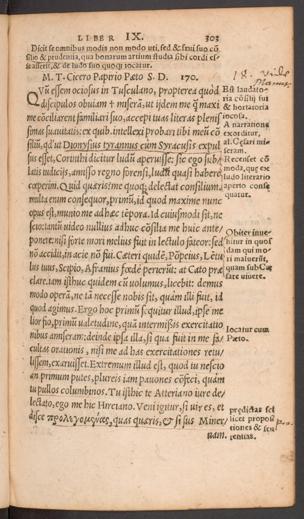 LIBER IX. 303
Dicit se omnibus modis non modo uti, sed & frui suo cõ
silio & prudentia, qua bonarum artium studia sibi cordi es-
se asserit, & de ludo suo quoq; iocatur.
M. T. Cicero Papirio Pæto S. D. 170.
QVũ essem ociosus in Tusculano, propterea quòd
discipulos obuiam miserã, ut ijdem me q̃ maximè
cõciliarent familiari suo, accepi tuas literas plenis
simas suauitatis: ex quib. intellexi probari tibi meũ cõ
siliũ, qd' ut Dionysius tyrannus cum Syracusis expul
sus esset, Corinthi dicitur ludũ aperuisse: sic ego sub
latis iudicijs, amisso regno forensi, ludũ quasi habere
cœperim. Quid quæris? me quoq; delectat consilium:
multa enim consequor, primũ, id quod maxime nunc
opus est, munio me ad hæc tẽpora. id cuiusmodi sit, ne
scio: tantũ uideo nullius adhuc cõsilia me huic ante-
ponere: nisi forte mori melius fuit. in lectulo fateor: sed
nõ accidit, in acie nõ fui. Cæteri quidẽ, Põpeius, Lẽtu
lus tuus, Scipio, Afranius fœdè perierũt: at Cato præ
clare. iam istuc quidem cũ uolumus, licebit: demus
modo operã, ne tã necesse nobis sit, quàm illi fuit, id
quod agimus. Ergo hoc primũ: sequitur illud, ipse me
lior fio, primũ ualetudine, quã intermissis exercitatio
nibus amiseram: deinde ipsa illa, si qua fuit in me fa
cultas orationis, nisi me ad has exercitationes retu
lissem, exaruisset. Extremum illud est, quod tu nescio
an primum putes, plureis iam pauones cõfeci, quàm
tu pullos columbinos. Tu istic te Atteriano iure de
lectato, ego me hic Hirtiano. Veni igitur, si uir es, et
disce προλεγομένας, quas quæris, & si sus Miner
uam.
Est laudato
ria cõsilij sui
& hortatoria
iocosa.
A narratione
exorditur,
al. Cesari mi-
seram.
Recenset cõ
moda, quæ ex
ludo literario
aperto conse
quatur.
Obiter inue
hitur in quos
dam qui mo
ri maluerũt,
quàm sub Cæ
sare uiuere.
Iocatur cum
Pæto.
prędictas sci
licet proposi
tiones & sen
tentias.